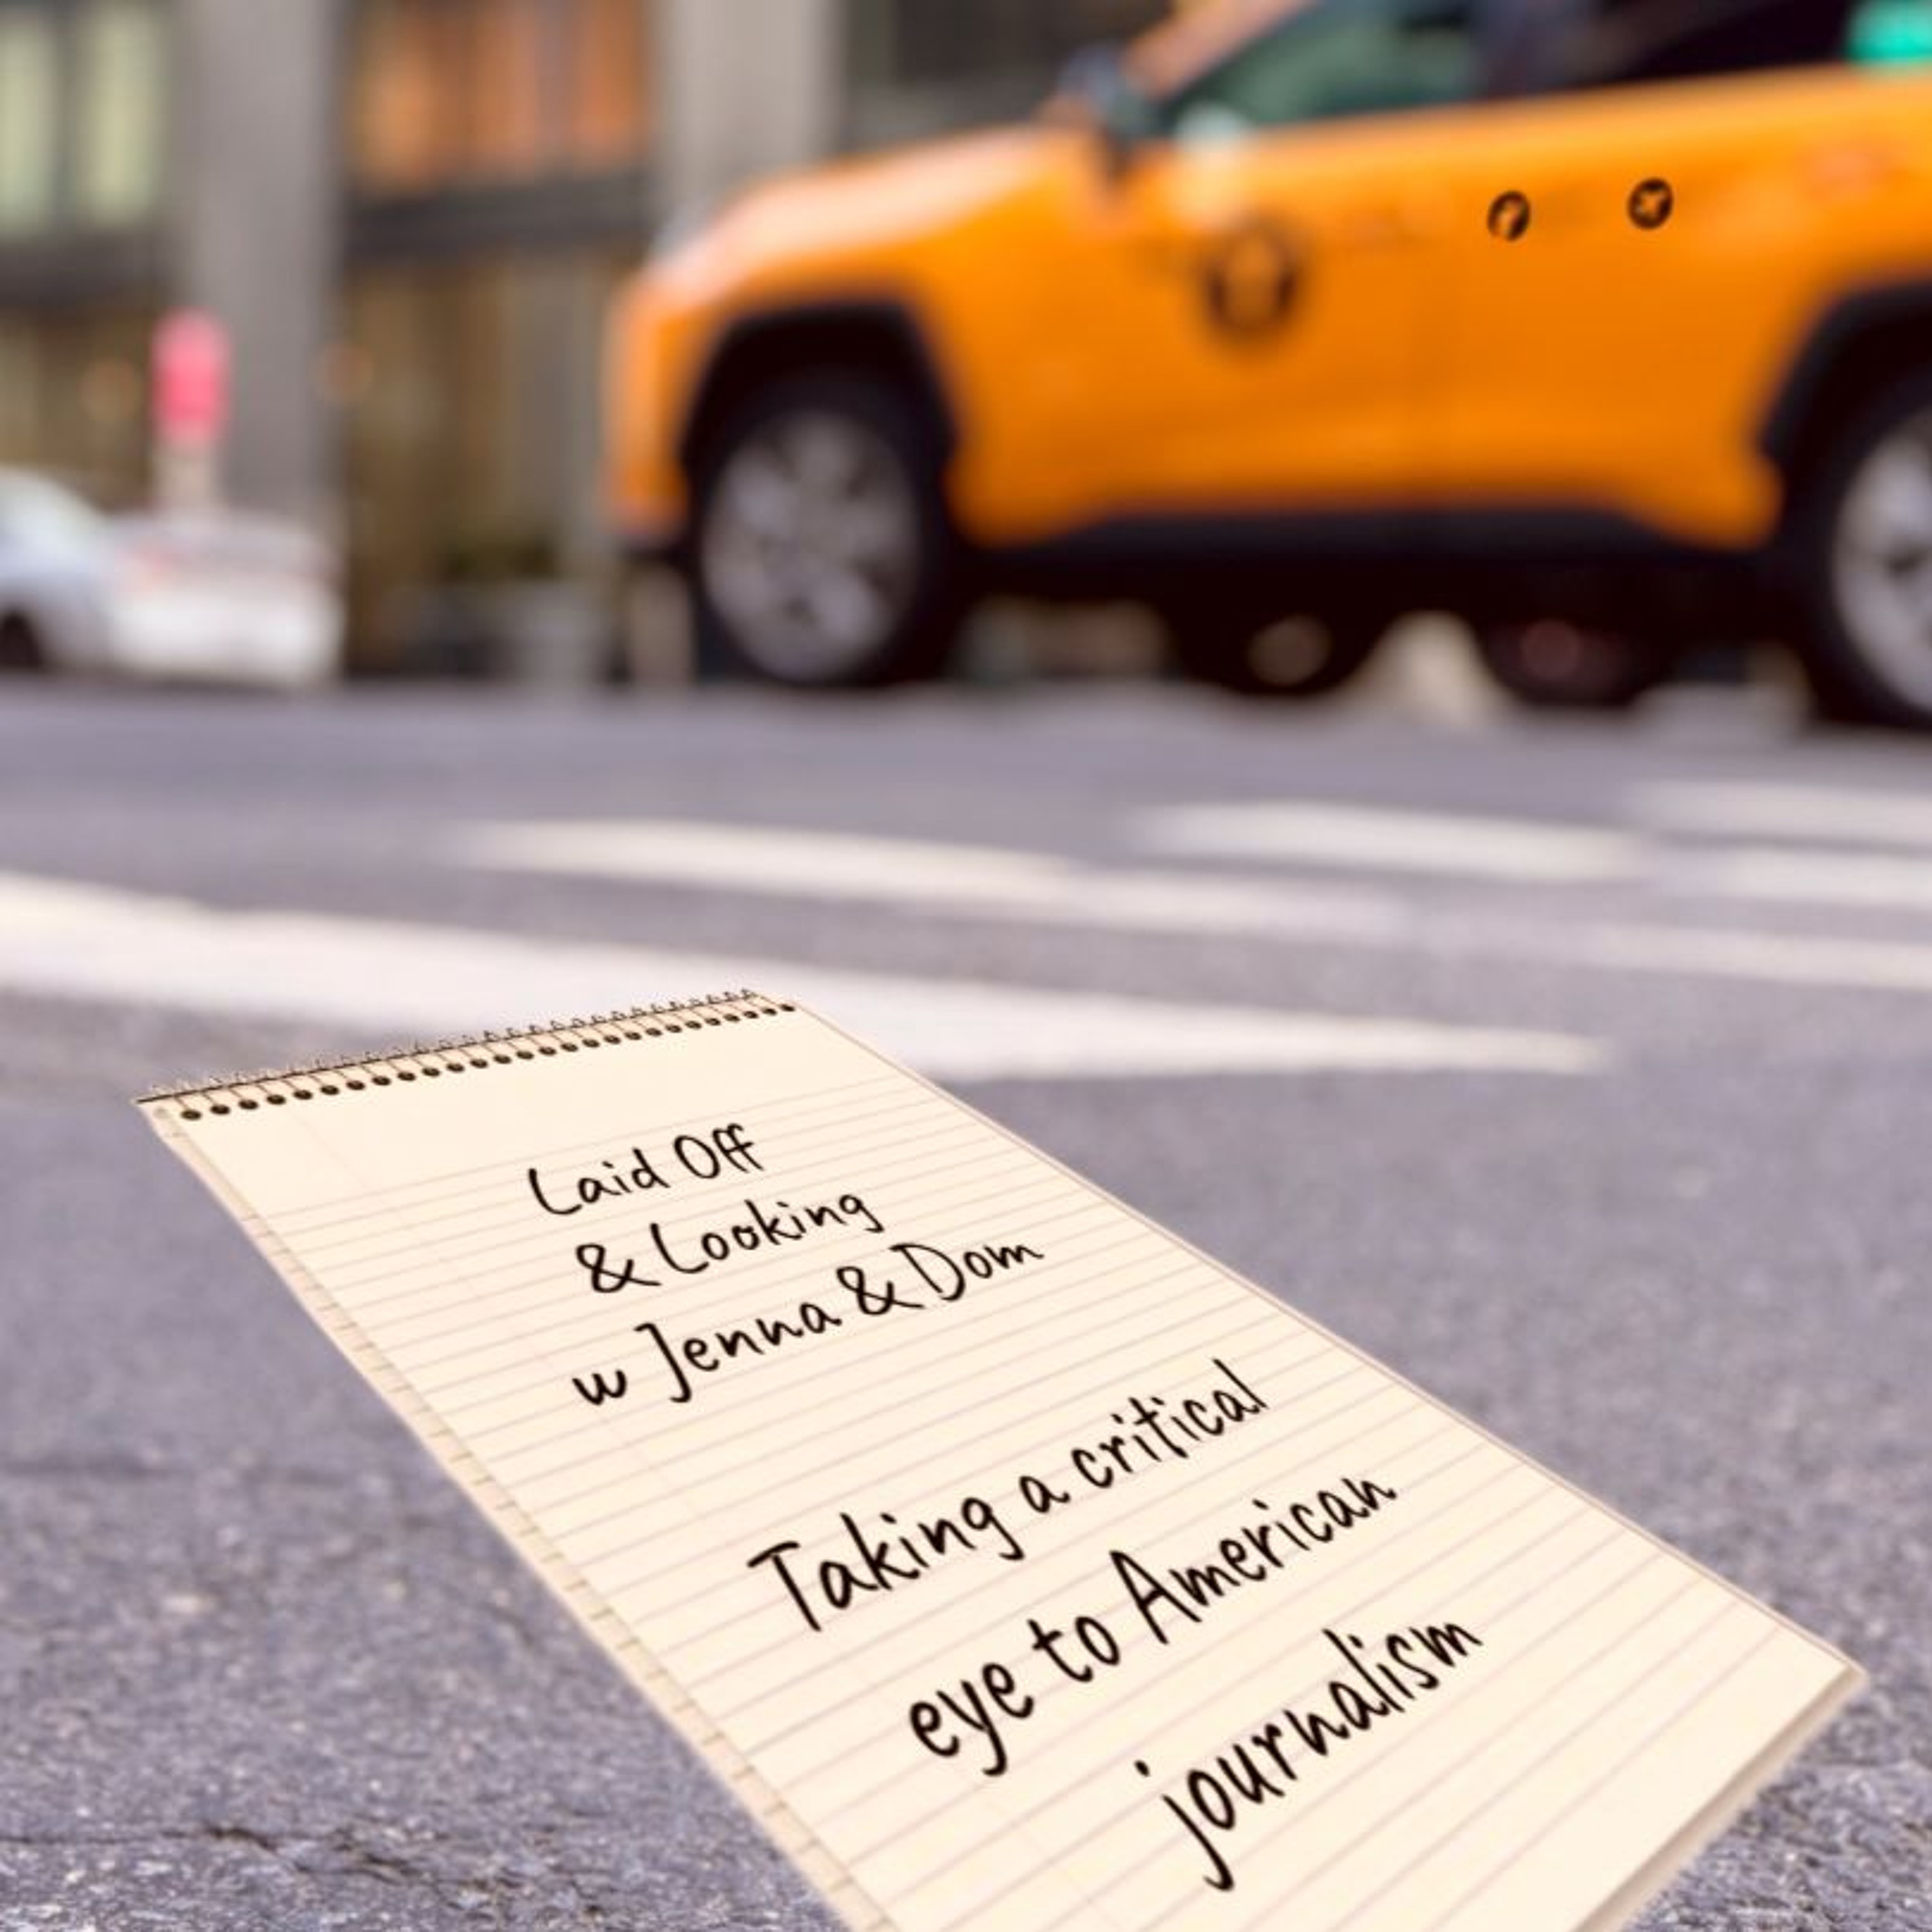 Laid Off
& Looking
w Jenna & Dom
Taking a critical
eye to American
journalism